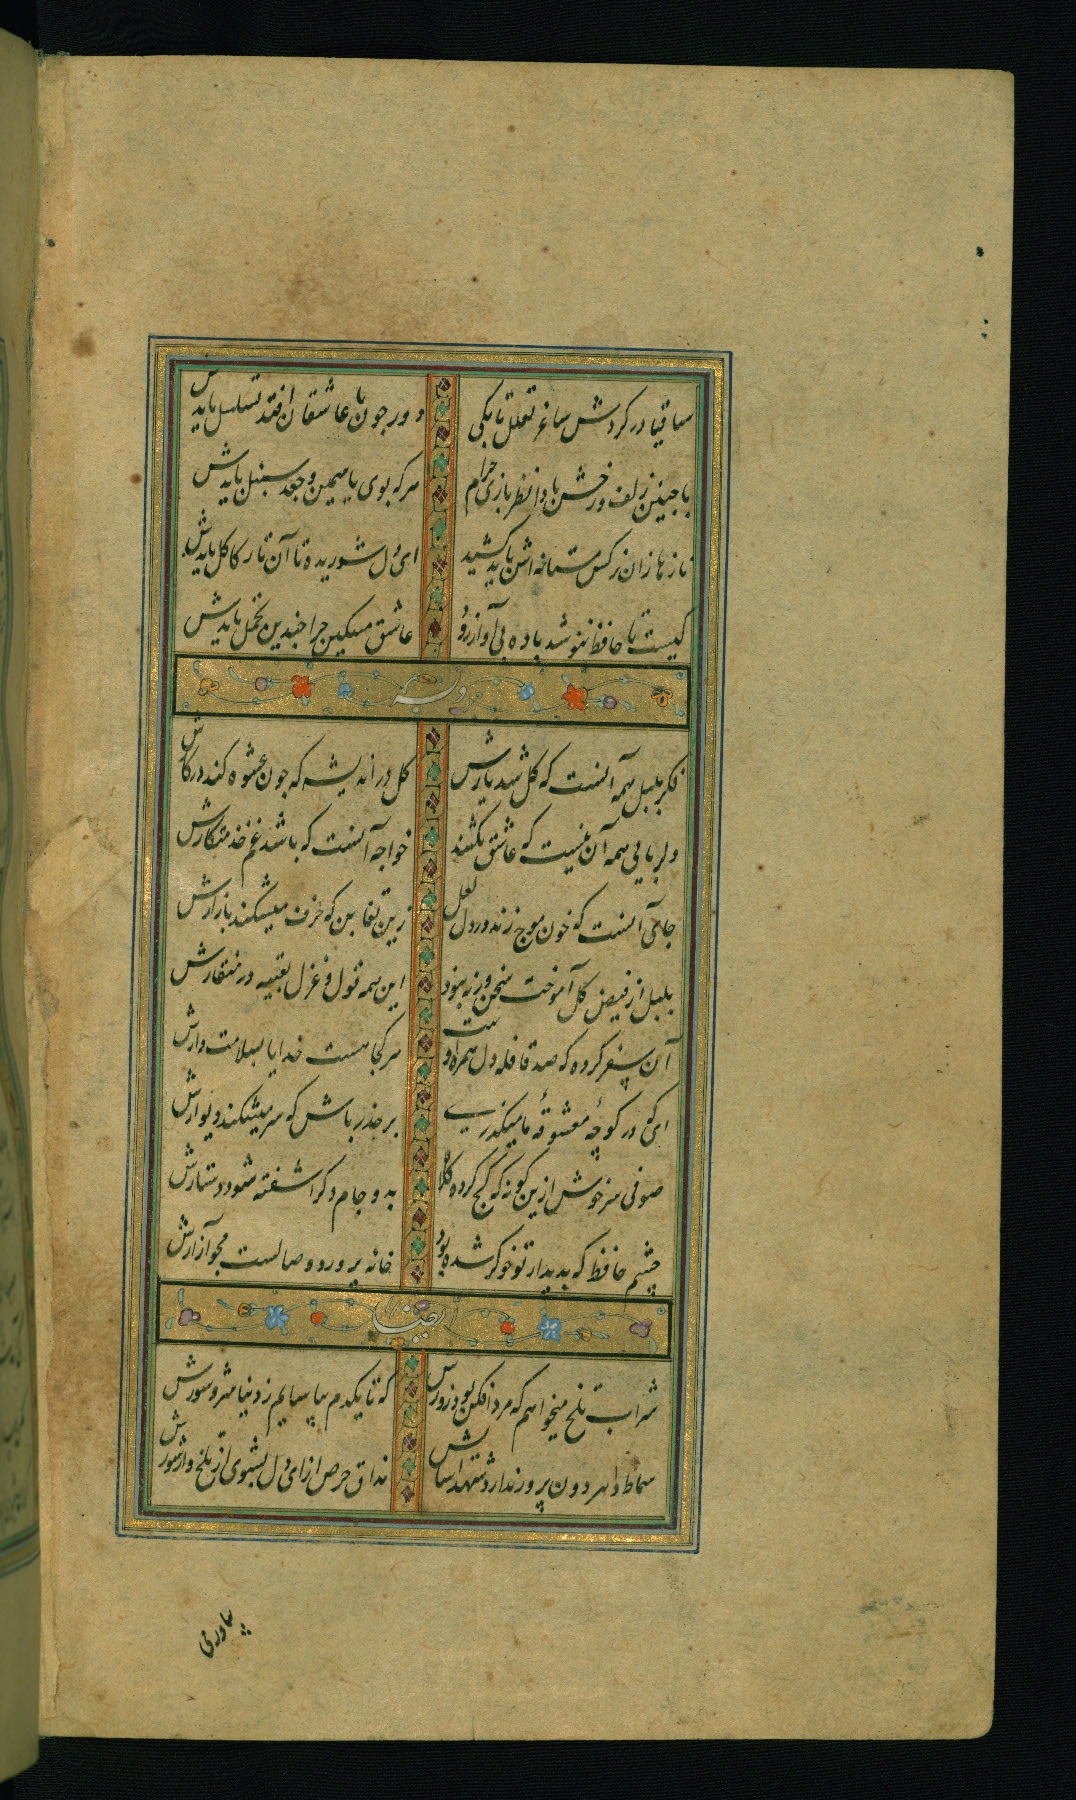 ساقیا در کردش ساغر تعلل تا بکی دور چون با عاشقان افتد تسلسل بایدش
با چنین زلف و رخش بادا نظر بازی حرام هرکه بوی یاسمین و جعد سنبل بایدش
نازها زان نرکس مستانه اش باید کشید ای دل شوریده تا آن تار کاکل بایدش
کیست تا حافظ ننوشد باده بی آواز رود عاشق مسکین چرا چندین تحمل بایدش
وله
فکر بلبل همه آنست که کل شد یارش کل در اندیشه که چون عشوه کند در کارش
دلربایی همه آن نیست که عاشق بکشند خواجه آنست که باشد غم خدمتکارش
جای آنست که خون موج زند در دل لعل زین تغابن که خزف میشکند بازارش
بلبل از فیض کل آموخت سخن ورنه نبود این همه قول و غزل تعبیه در منقارش
آن سفر کرده که صد قافله دل همراه اوست هر کجا هست خدایا بسلامت دارش
ای که در کوچهٔ معشوقهٔ ما میکذری بر حذر باش که سر میشکند دیوارش
صوفی سرخوش ازین کونه که کج کرده کلاه بدو جام دکر آشفته شود دستارش
چشم حافظ که بدیدار تو خوکر شده بود خانه پرورد وصالست مجو آزارش
ایضا
شراب تلخ میخواهم که مرد افکن بود زورش که تا یکدم بیاسایم ز دنیا و شر و شورش
سماط دهر دون پرور ندارد شهد آسایش مذاق حرص از ای دل بشوی از تلخ و از شورش
بیاور می